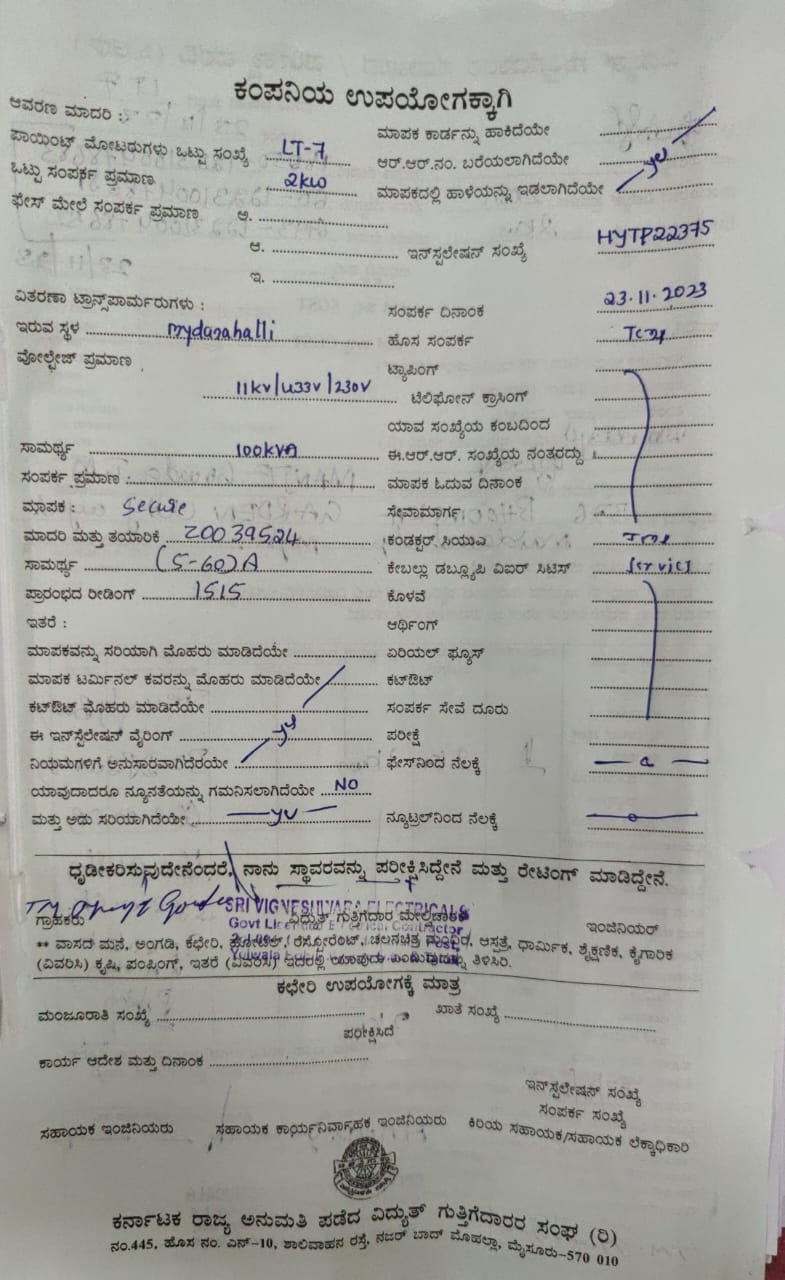 ಕಂಪನಿಯ ಉಪಯೋಗಕ್ಕಾಗಿ
ಆವರಣ ಮಾದರಿ :
ಮಾಪಕ ಕಾರ್ಡನ್ನು ಹಾಕಿದೆಯೇ
ಪಾಯಿಂಟ್ ಮೋಟರುಗಳು ಒಟ್ಟು ಸಂಖ್ಯೆ LT-7
ಆರ್.ಆರ್.ನಂ. ಬರೆಯಲಾಗಿದೆಯೇ
ಒಟ್ಟು ಸಂಪರ್ಕ ಪ್ರಮಾಣ 2kw
ಮಾಪಕದಲ್ಲಿ ಹಾಳೆಯನ್ನು ಇಡಲಾಗಿದೆಯೇ
ಫೇಸ್ ಮೇಲೆ ಸಂಪರ್ಕ ಪ್ರಮಾಣ ಅ.
ಆ. ಇನ್‌ಸ್ಟಲೇಷನ್ ಸಂಖ್ಯೆ HYTP22375
ಇ.
ವಿತರಣಾ ಟ್ರಾನ್ಸ್‌ಪಾರ್ಮರುಗಳು :
ಸಂಪರ್ಕ ದಿನಾಂಕ 23.11.2023
ಇರುವ ಸ್ಥಳ mydanahalli
ಹೊಸ ಸಂಪರ್ಕ
ವೋಲ್ಟೇಜ್ ಪ್ರಮಾಣ
ಟ್ಯಾಪಿಂಗ್
11kv/433v/230v ಟೆಲಿಫೋನ್ ಕ್ರಾಸಿಂಗ್
ಯಾವ ಸಂಖ್ಯೆಯ ಕಂಬದಿಂದ
ಸಾಮರ್ಥ್ಯ 100kVA ಈ.ಆರ್.ಆರ್. ಸಂಖ್ಯೆಯ ನಂತರದ್ದು
ಸಂಪರ್ಕ ಪ್ರಮಾಣ : ಮಾಪಕ ಓದುವ ದಿನಾಂಕ
ಮಾಪಕ : Secure ಸೇವಾಮಾರ್ಗ
ಮಾದರಿ ಮತ್ತು ತಯಾರಿಕೆ Z0039524 ಕಂಡಕ್ಟರ್ ಸಿಯುಎ
ಸಾಮರ್ಥ್ಯ (5-60)A ಕೇಬಲ್ಲು ಡಬ್ಲ್ಯೂಪಿ ಎಐರ್ ಸಿಟಿಸ್ Service
ಪ್ರಾರಂಭದ ರೀಡಿಂಗ್ 1515 ಕೊಳವೆ
ಇತರೆ : ಆರ್ಥಿಂಗ್
ಮಾಪಕವನ್ನು ಸರಿಯಾಗಿ ಮೊಹರು ಮಾಡಿದೆಯೇ ಏರಿಯಲ್ ಫ್ಯೂಸ್
ಮಾಪಕ ಟರ್ಮಿನಲ್ ಕವರನ್ನು ಮೊಹರು ಮಾಡಿದೆಯೇ ಕಟ್‌ಔಟ್
ಕಟ್‌ಔಟ್ ಮೊಹರು ಮಾಡಿದೆಯೇ ಸಂಪರ್ಕ ಸೇವೆ ದೂರು
ಈ ಇನ್‌ಸ್ಟೆಲೇಷನ್ ವೈರಿಂಗ್ ಪರೀಕ್ಷೆ
ನಿಯಮಗಳಿಗೆ ಅನುಸಾರವಾಗಿದೆರೆಯೇ ಫೇಸ್‌ನಿಂದ ನೆಲಕ್ಕೆ
ಯಾವುದಾದರೂ ನ್ಯೂನತೆಯನ್ನು ಗಮನಿಸಲಾಗಿದೆಯೇ NO
ಮತ್ತು ಅದು ಸರಿಯಾಗಿದೆಯೇ ನ್ಯೂಟ್ರಲ್‌ನಿಂದ ನೆಲಕ್ಕೆ
ಧೃಡೀಕರಿಸುವುದೇನೆಂದರೆ, ನಾನು ಸ್ಥಾವರವನ್ನು ಪರೀಕ್ಷಿಸಿದ್ದೇನೆ ಮತ್ತು ರೇಟಿಂಗ್ ಮಾಡಿದ್ದೇನೆ.
SRI VIGNESHWARA ELECTRICALS
ಗ್ರಾಹಕರು ವಿದ್ಯುತ್ ಗುತ್ತಿಗೆದಾರ ಮೇಲ್ವಿಚಾರಕ ಇಂಜಿನಿಯರ್
** ವಾಸದ ಮನೆ, ಅಂಗಡಿ, ಕಛೇರಿ, ಹೋಟೆಲ್, ರೆಸ್ಟೋರೆಂಟ್, ಚಲನಚಿತ್ರ ಮಂದಿರ, ಆಸ್ಪತ್ರೆ, ಧಾರ್ಮಿಕ, ಶೈಕ್ಷಣಿಕ, ಕೈಗಾರಿಕ
(ವಿವರಿಸಿ) ಕೃಷಿ, ಪಂಪಿಂಗ್, ಇತರೆ (ವಿವರಿಸಿ) ಇದರಲ್ಲಿ ಯಾವುದು ಎಂಬುದನ್ನು ತಿಳಿಸಿರಿ.
ಕಛೇರಿ ಉಪಯೋಗಕ್ಕೆ ಮಾತ್ರ
ಮಂಜೂರಾತಿ ಸಂಖ್ಯೆ ಖಾತೆ ಸಂಖ್ಯೆ
ಪರೀಕ್ಷಿಸಿದೆ
ಕಾರ್ಯ ಆದೇಶ ಮತ್ತು ದಿನಾಂಕ
ಇನ್‌ಸ್ಟಲೇಷನ್ ಸಂಖ್ಯೆ
ಸಂಪರ್ಕ ಸಂಖ್ಯೆ
ಸಹಾಯಕ ಇಂಜಿನಿಯರು ಸಹಾಯಕ ಕಾರ್ಯನಿರ್ವಾಹಕ ಇಂಜಿನಿಯರು ಕಿರಿಯ ಸಹಾಯಕ/ಸಹಾಯಕ ಲೆಕ್ಕಾಧಿಕಾರಿ
ಕರ್ನಾಟಕ ರಾಜ್ಯ ಅನುಮತಿ ಪಡೆದ ವಿದ್ಯುತ್ ಗುತ್ತಿಗೆದಾರರ ಸಂಘ (ರಿ)
ನಂ.445, ಹೊಸ ನಂ. ಎನ್-10, ಶಾಲಿವಾಹನ ರಸ್ತೆ, ನಜರ್ ಬಾದ್ ಮೊಹಲ್ಲಾ, ಮೈಸೂರು-570 010